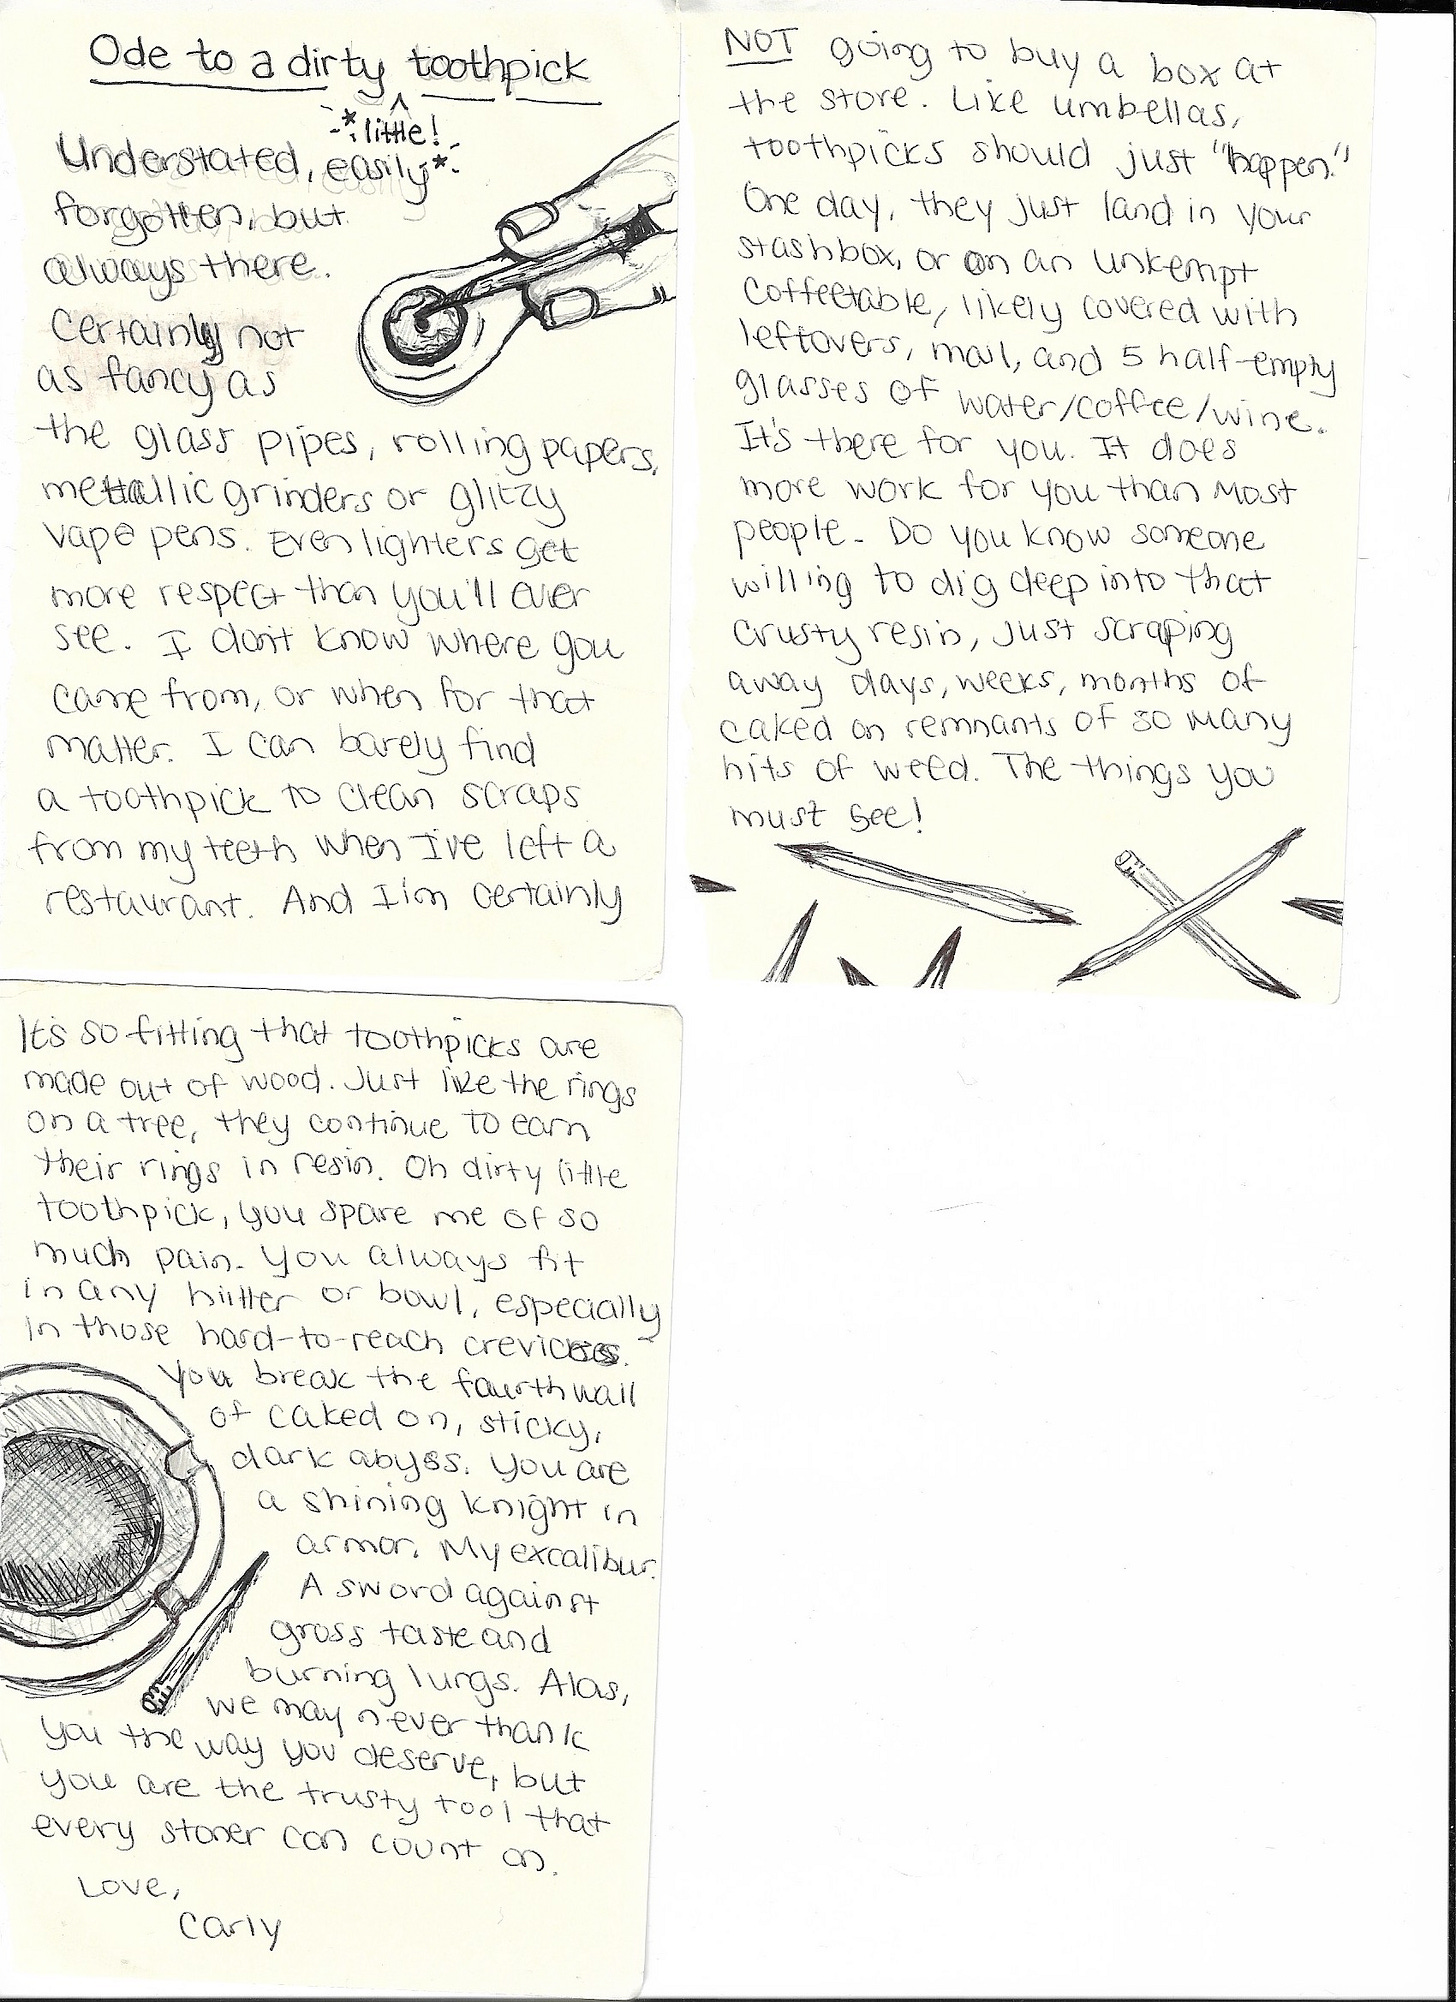 Ode to a dirty toothpick
^
*little!*
Understated, easily
forgotten, but
always there.
Certainly not
as fancy as
the glass pipes, rolling papers,
metallic grinders or glitzy
vape pens. Even lighters get
more respect than you'll ever
see. I don't know where you
came from, or when for that
matter. I can barely find
a toothpick to clean scraps
from my teeth when I've left a
restaurant. And I'm certainly
NOT going to buy a box at
the store. Like umbellas,
toothpicks should just "happen."
One day, they just land in your
stashbox, or on an unkempt
coffeetable, likely covered with
leftovers, mail, and 5 half-empty
glasses of water/coffee/wine.
It's there for you. It does
more work for you than most
people. Do you know someone
willing to dig deep into that
crusty resin, just scraping
away days, weeks, months of
caked on remnants of so many
hits of weed. The things you
must see!
It's so fitting that toothpicks are
made out of wood. Just like the rings
on a tree, they continue to earn
their rings in resin. Oh dirty little
toothpick, you spare me of so
much pain. You always fit
in any hitter or bowl, especially
in those hard-to-reach crevices.
You break the fourth wall
of caked on, sticky,
dark abyss. You are
a shining knight in
armor. My excalibur.
A sword against
gross taste and
burning lungs. Alas,
we may never thank
you the way you deserve, but
you are the trusty tool that
every stoner can count on.
Love,
Carly